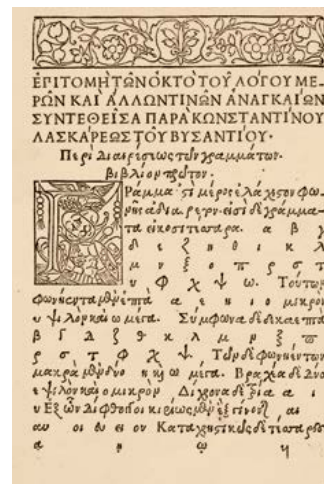 ἘΠΙΤΟΜῊ ΤΩ͂Ν ὈΚΤῸ ΤΟΥ͂ ΛΌΓΟΥ ΜΕ-
ΡΩ͂Ν ΚΑῚ ἌΛΛΩΝ ΤΙΝΩ͂Ν ἈΝΑΓΚΑΊΩΝ
ΣΥΝΤΕΘΕΙ͂ΣΑ ΠΑΡᾺ ΚΩΝΣΤΑΝΤΊΝΟΥ
ΛΑΣΚΆΡΕΩΣ ΤΟΥ͂ ΒΥΣΑΝΤΊΟΥ·
Περὶ διαιρέσεως τῶν γραμμάτων·
βιβλίον πρῶτον·
Γράμμα ἐστὶ μέρος ἐλάχιστον φω
νῆς ἀδιαίρετον. εἰσὶ δὲ γράμμα-
τα εἰκοσιτέσσαρα. α β γ
δ ε ζ η θ ι κ λ
μ ν ξ ο π ρ σ τ
υ φ χ ψ ω. Τούτων
φωνήεντα μὲν ἑπτά α ε η ι ο μικρὸν
υ ψιλὸν καὶ ω μέγα. Σύμφωνα δὲ δεκαεπτά
β γ δ ζ θ κ λ μ ν ξ π
ρ σ τ φ χ ψ. Τῶν δὲ φωνηέντων
μακρὰ μὲν δύο η καὶ ω μέγα. Βραχέα δὲ δύο
ε ψιλὸν καὶ ο μικρὸν Δίχρονα δὲ τρία α ι
υ Ἐξ ὧν δίφθογγοι κυρίως μὲν ἓξ γίνονται αι
αυ οι ευ ει ου Καταχρηστικῶς δὲ τέσσαρες
ᾳ ῃ ῳ υι